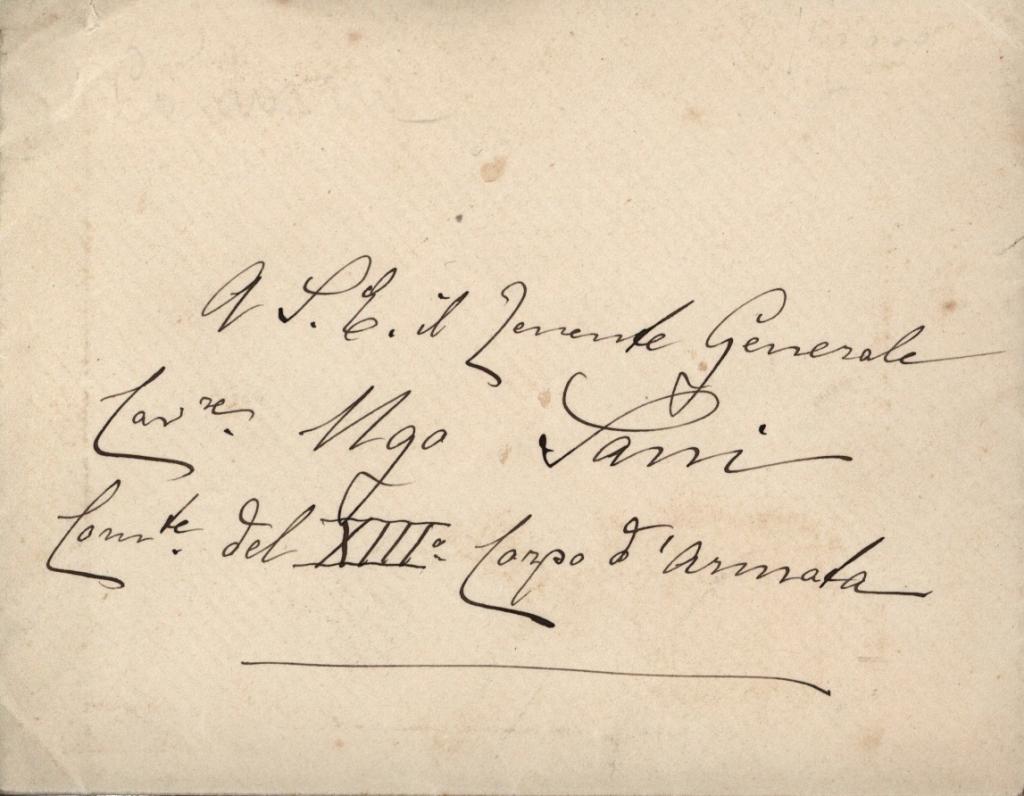 A S. E. il Tenente Generale
Cav.re Ugo Sani
Com.te del XIII° Corpo d'Armata